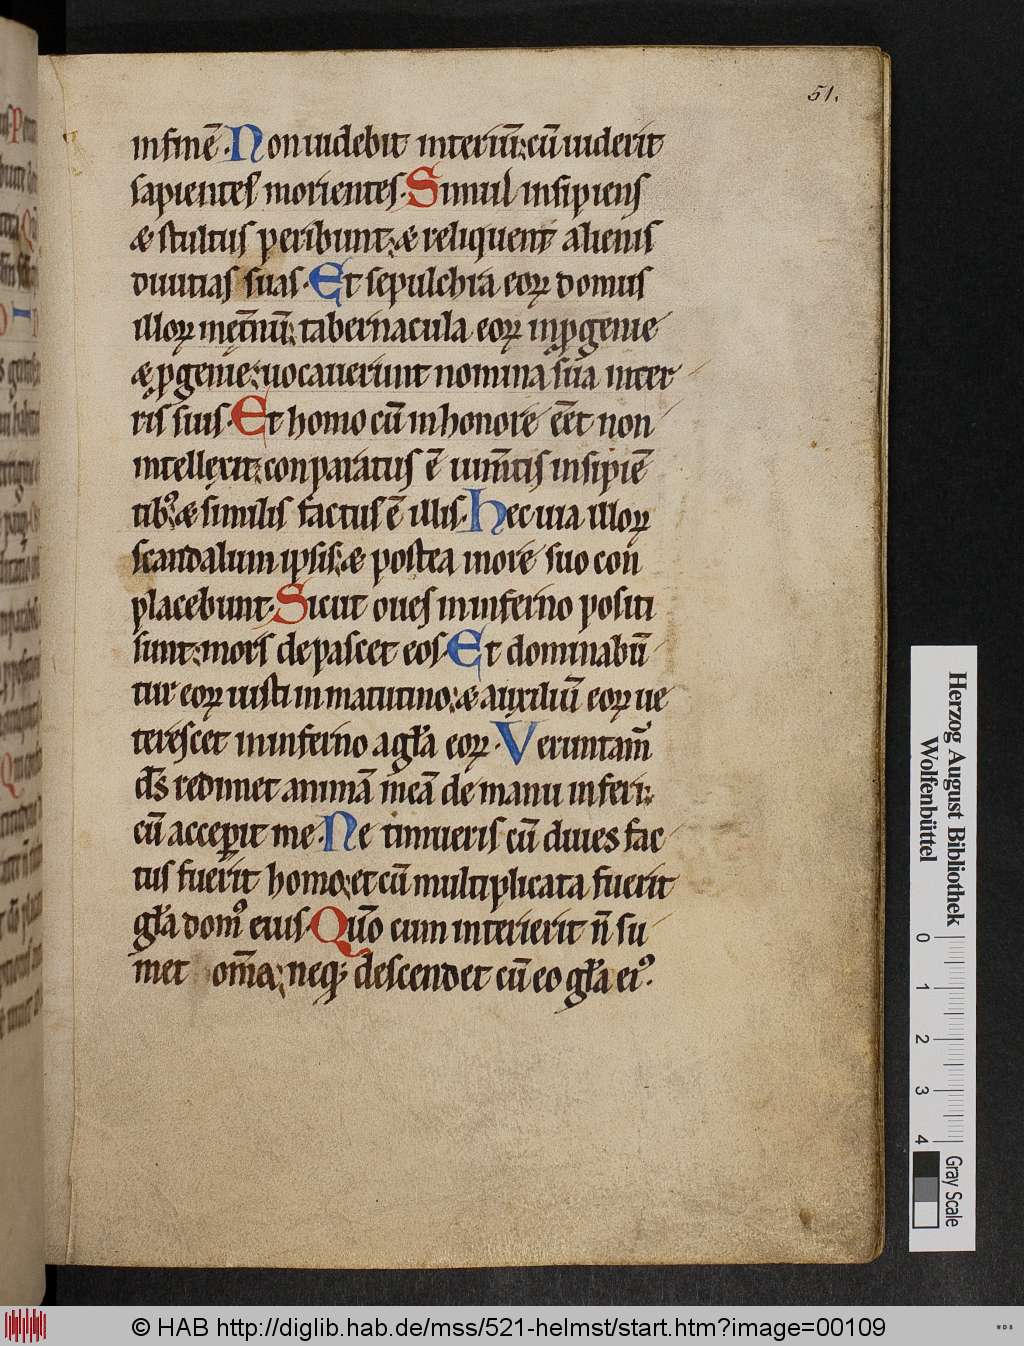 51.
in finē. Non uidebit interitū; cū uiderit
sapientes morientes. Simul insipiens
& stultus peribunt; & reliquent alienis
diuitias suas. Et sepulchra eoꝝ domus
illoꝝ inęt̄nū; tabernacula eoꝝ in ꝓgenie
& ꝓgenie; uocauerunt nomina sua in ter
ris suis. Et homo cū in honore eēt non
intellexit; conparatus ē ium̄tis insipiē
tibꝰ & similis factus ē illis. Hec uia illoꝝ
scandalum ipsis; & postea in ore suo con
placebunt. Sicut oues in inferno positi
sunt; mors depascet eos. Et dominabū
tur eoꝝ iusti in matutino; & auxiliū eoꝝ ue
terescet in inferno a gl̄a eoꝝ. Veruntam̄
ds̄ redimet animā meā de manu inferi;
cū acceꝑit me. Ne timueris cū diues fac
tus fuerit homo; et cū multiplicata fuerit
gl̄a domꝰ eius. Quō cum interierit n̄ su
met om̄a; neqꝫ descendet cū eo gl̄a eiꝰ.
Herzog August Bibliothek
Wolfenbüttel
0 1 2 3 4
Gray Scale
© HAB http://diglib.hab.de/mss/521-helmst/start.htm?image=00109